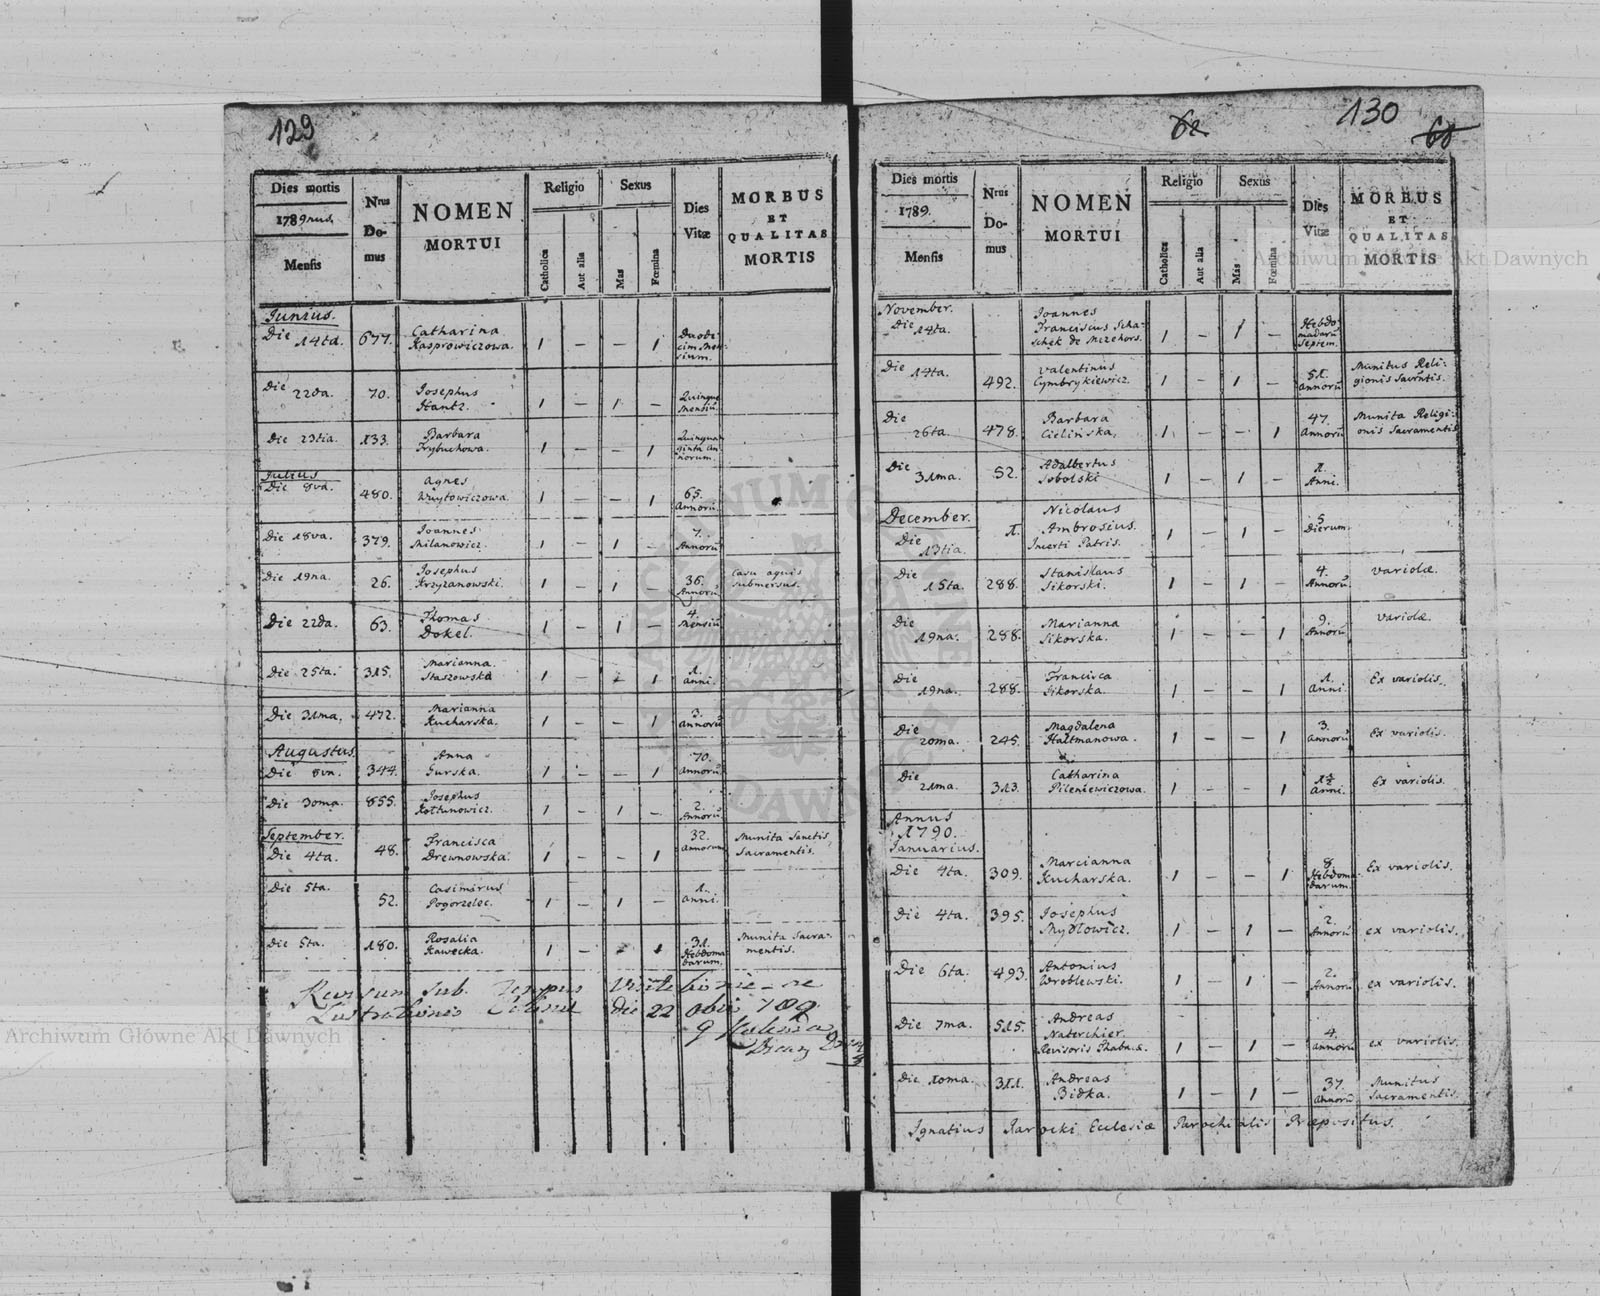 129
Dies mortis
1789nus.
Mensis
Nrus Do-mus
NOMEN MORTUI
Religio
Catholica
Aut alia
Sexus
Mas
Fœmina
Dies Vitæ
MORBUS ET QUALITAS MORTIS
Junius.
Die 14ta. 677. Catharina Kasprowiczowa. 1 – – 1 Duode-cim Men-sium.
Die 22da. 70. Josephus Hantz. 1 – 1 – Quinque Mensiũ
Die 23tia. 133. Barbara Trybuchowa. 1 – – 1 Quinqua-ginta An-norum.
Julius
Die 8va. 480. Agnes Wuytowiczowa. 1 – – 1 65. Annorũ
Die 18va. 379. Joannes Milanowicz. 1 – 1 – 7. Annorũ
Die 19na. 26. Josephus Krzyzanowski. 1 – 1 – 36. Annorũ Casu aquis submersus.
Die 22da. 63. Thomas Dokel. 1 – 1 – 4. Mensiũ
Die 25ta. 315. Marianna Staszowska 1 – – 1 1. anni.
Die 31ma. 472. Marianna Kucharska. 1 – – 1 3. annorũ
Augustus.
Die 8va. 344. Anna Gurska. 1 – – 1 70. annorũ
Die 30ma. 855. Josephus Kołtunowicz. 1 – 1 – 2. Annorũ
September.
Die 4ta. 48. Francisca Drewnowska. 1 – – 1 32. annorum Munita Sanctis Sacramentis.
Die 5ta. 52. Casimirus Pogorzelec. 1 – 1 – 1. anni.
Die 5ta. 180. Rosalia Kawecka. 1 – – 1 31. Hebdoma-darum. Munita Sacra-mentis.
Revisum sub Tempus
Lustrationis die 22
62
130
68
Dies mortis
1789.
Mensis
Nrus Do-mus
NOMEN MORTUI
Religio
Catholica
Aut alia
Sexus
Mas
Fœmina
Dies Vitæ
MORBUS ET QUALITAS MORTIS
November.
Die 14ta. Joannes Franciscus Scha-schek de Mezehors. 1 – 1 – Hebdo-madarũ Septem.
Die 14ta. 492. Valentinus Cymbrykiewicz. 1 – 1 – 51. annorũ Munitus Reli-gionis Sacrntis.
Die 26ta. 478. Barbara Cielińska. 1 – – 1 47. Annorũ Munita Religi-onis Sacramentis
Die 31ma. 52. Adalbertus Sobolski 1 – 1 – 1. Anni.
December.
Die 13tia. 1. Nicolaus Ambrosius. Incerti Patris. 1 – 1 – 5 Dierum.
Die 15ta. 288. Stanislaus Sikorski. 1 – 1 – 4. Annorũ variolæ.
Die 19na. 288. Marianna Sikorska. 1 – – 1 9. Annorũ variolæ.
Die 19na. 288. Francisca Sikorska. 1 – – 1 1. anni. Ex variolis.
Die 20ma. 245. Magdalena Haltmanowa. 1 – – 1 3. annorũ Ex variolis.
Die 21ma. 313. Catharina Pileniewiczowa. 1 – – 1 1½ anni. Ex variolis.
Annus 1790.
Januarius.
Die 4ta. 309. Marcianna Kucharska. 1 – – 1 8. Hebdoma-darum. Ex variolis.
Die 4ta. 395. Josephus Mydłowicz. 1 – 1 – 2. Annorũ ex variolis.
Die 6ta. 493. Antonius Wroblewski. 1 – 1 – 2. Annorũ ex variolis.
Die 7ma. 515. Andreas Naterchier Revisoris Thaba.æ. 1 – 1 – 4. annorũ ex variolis.
Die 10ma. 311. Andreas Bidka. 1 – 1 – 37. annorũ Munitus Sacramentis.
Ignatius Parocki Ecclesiæ Parochialis Præpositus.
Archiwum Główne Akt Dawnych
Archiwum Główne Akt Dawnych
ARCHIWUM GŁÓWNE AKT DAWNYCH